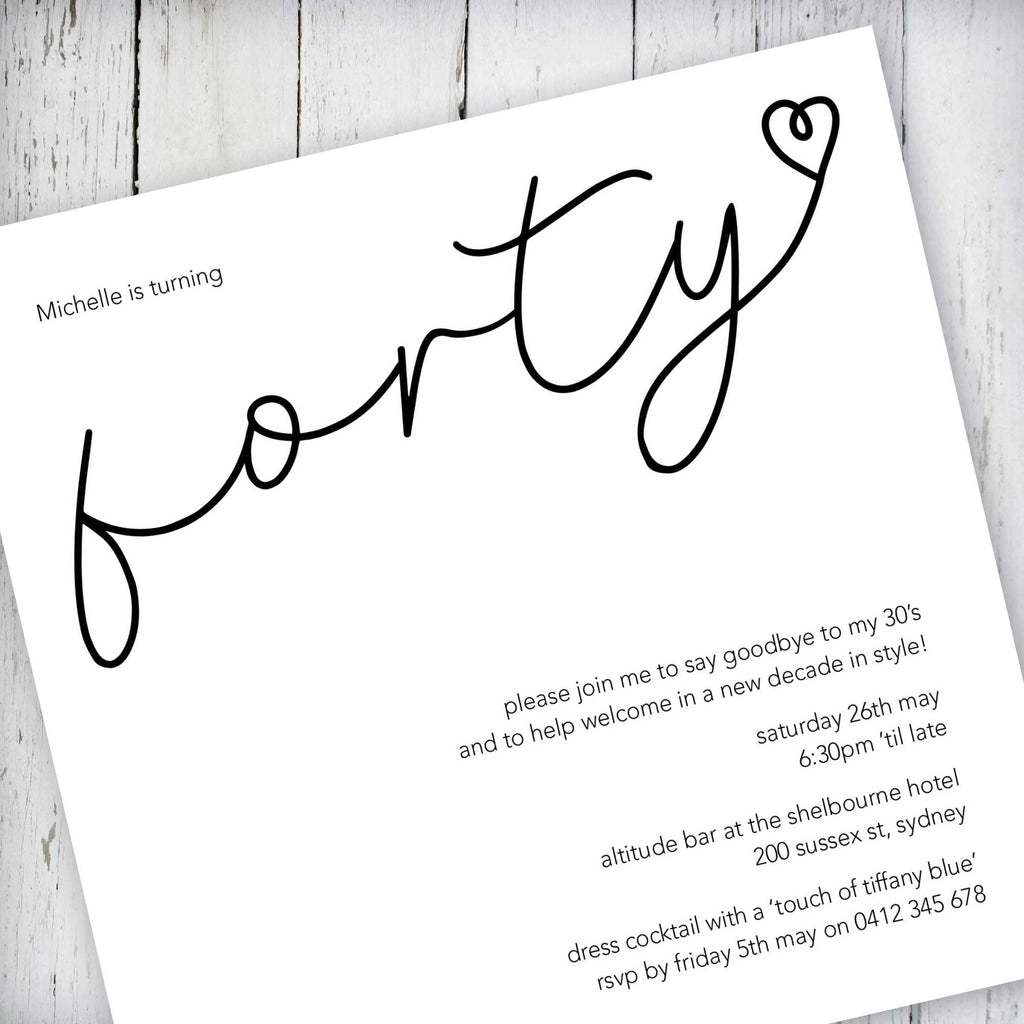 Michelle is turning
forty
please join me to say goodbye to my 30's
and to help welcome in a new decade in style!
saturday 26th may
6:30pm 'til late
altitude bar at the shelbourne hotel
200 sussex st, sydney
dress cocktail with a 'touch of tiffany blue'
rsvp by friday 5th may on 0412 345 678